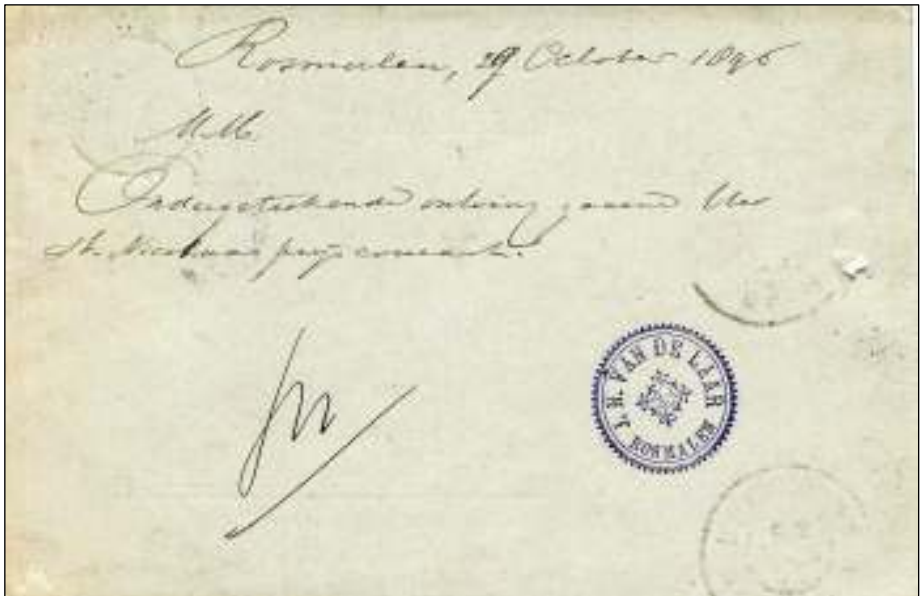 Rosmalen, 29 October 1896
M.M.
Ondergeteekende ontving gaarne Uw
St. Nicolaas prijscourant.
J. H. VAN DE LAAR
ROSMALEN